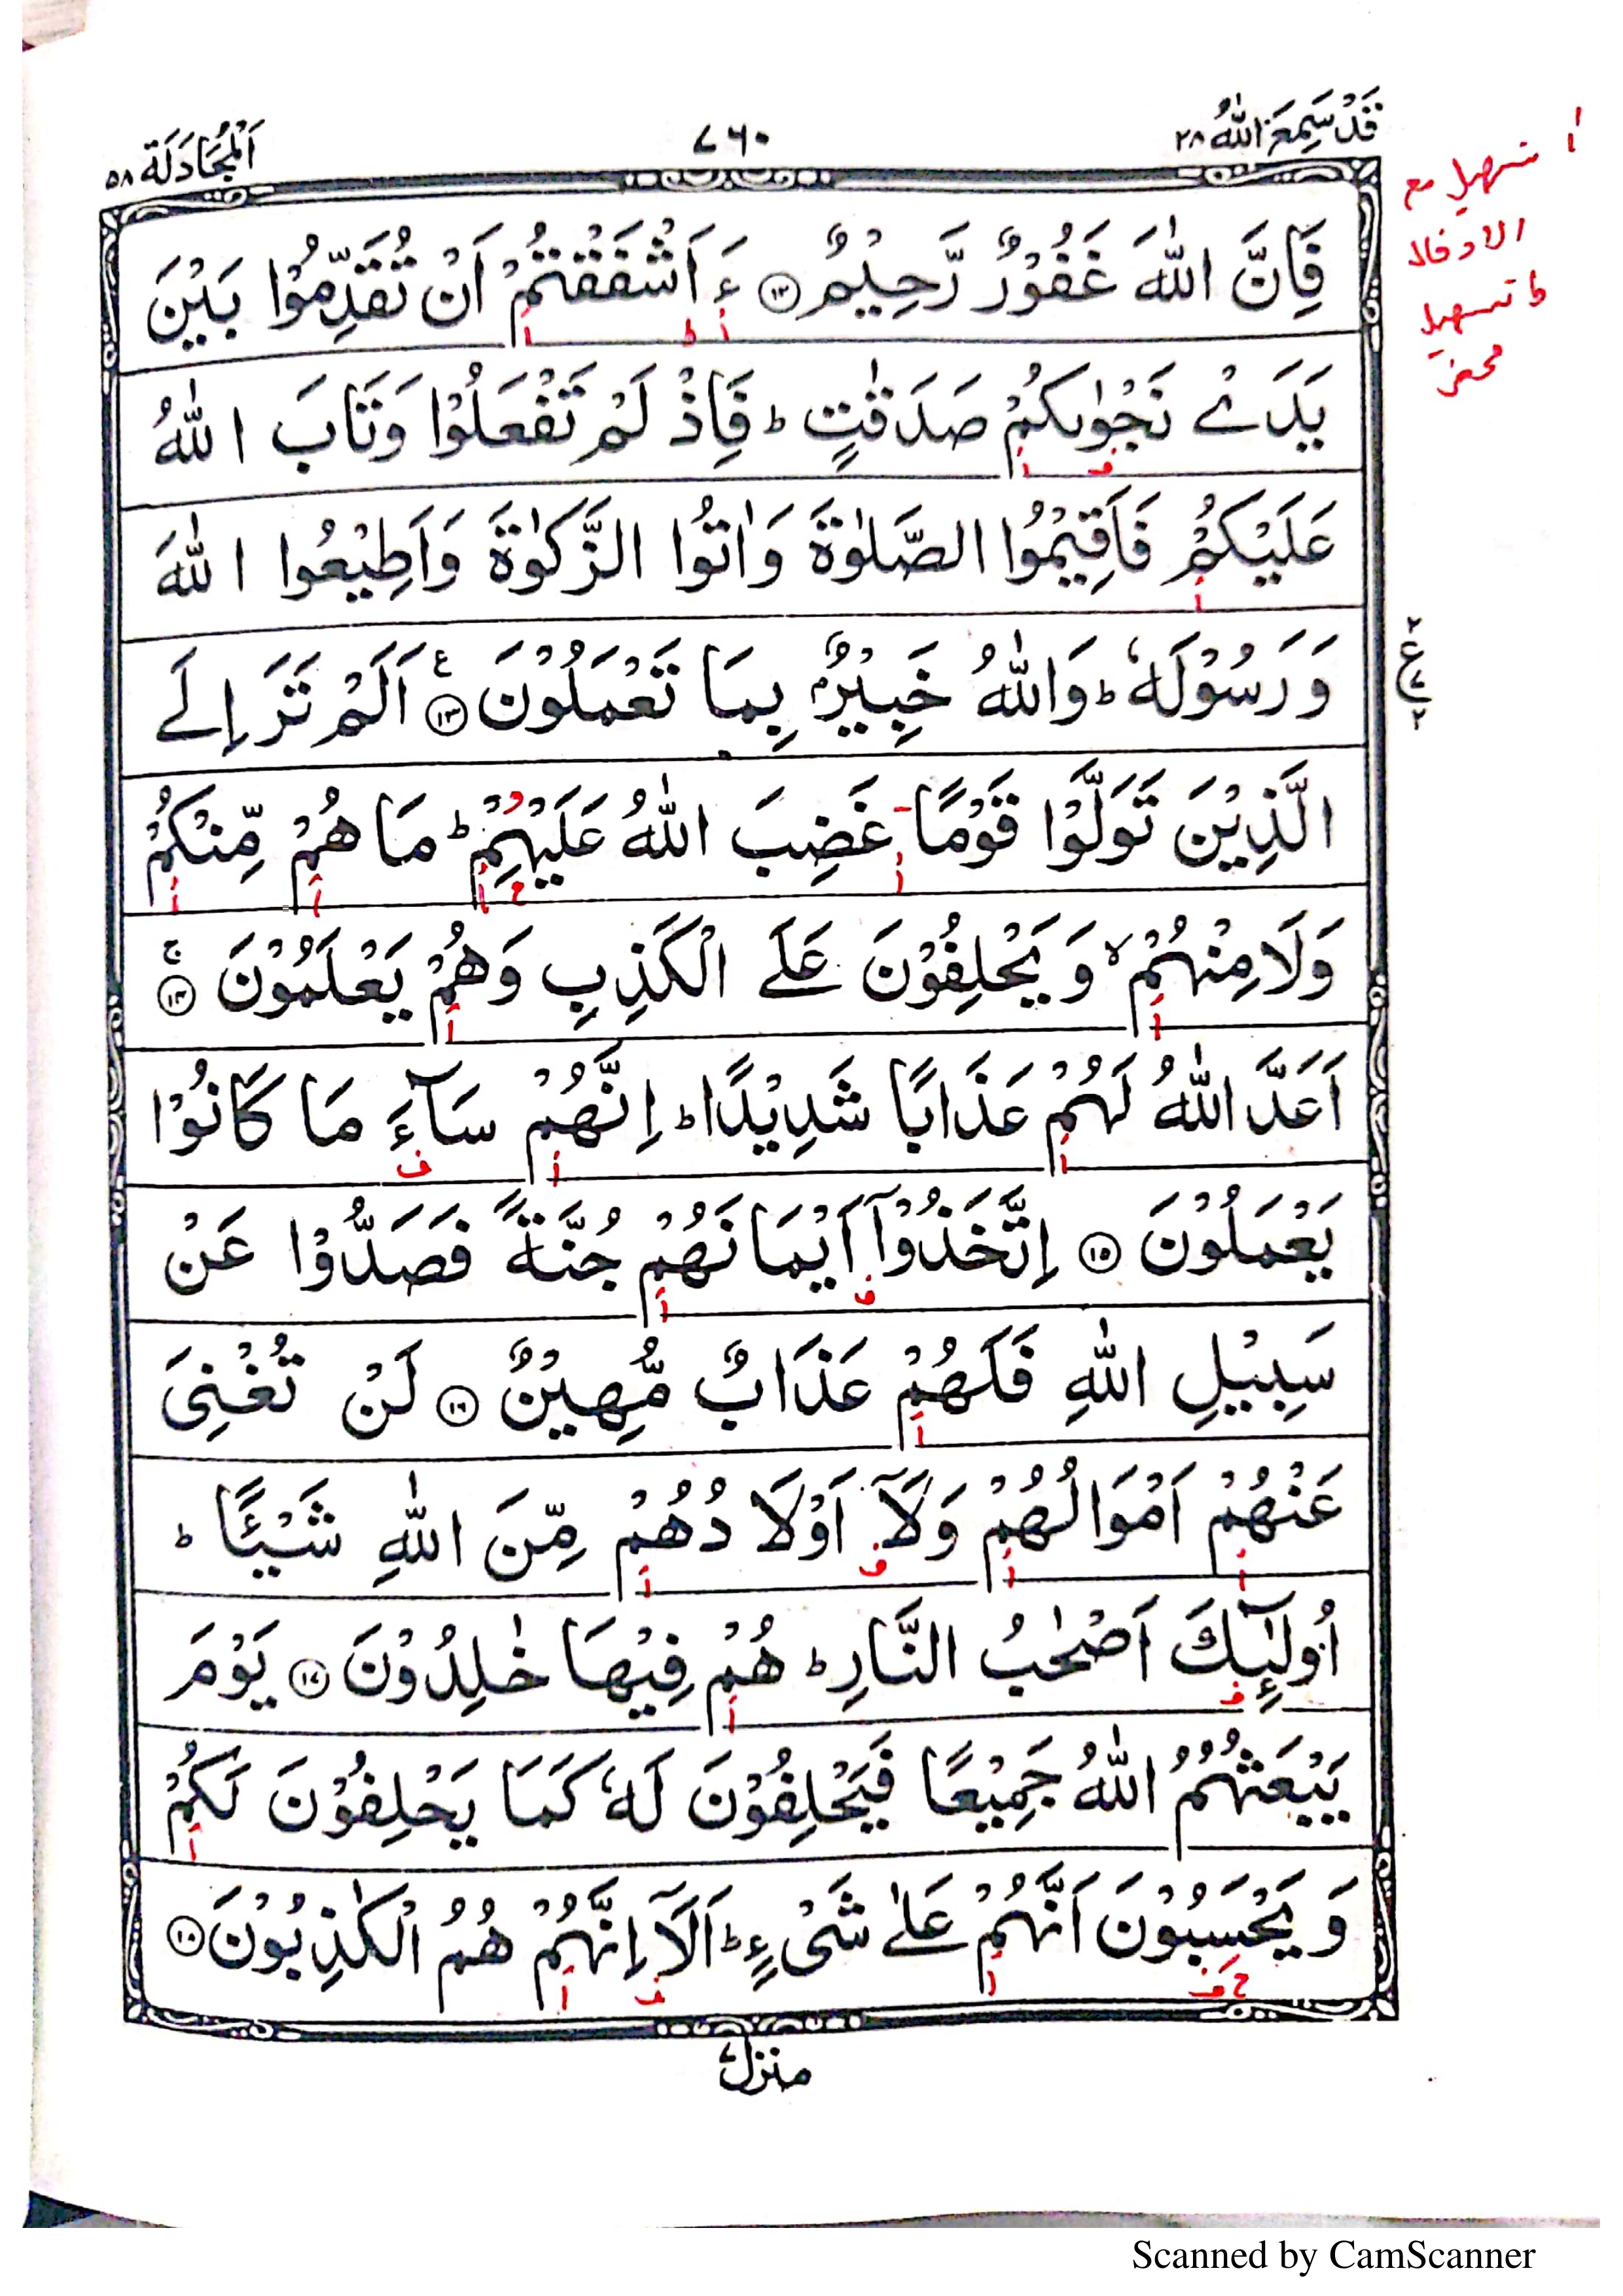 قَدْ سَمِعَ اللّٰهُ ٢٨
٧٦٠
اَلْمُجَادَلَة ٥٨
أ تسهيل مع
الادخال
ط تسهيل
محض
فَاِنَّ اللّٰهَ غَفُوْرٌ رَّحِيْمٌ ⑫ ءَ اَشْفَقْتُمْ اَنْ تُقَدِّمُوْا بَيْنَ
يَدَيْ نَجْوٰىكُمْ صَدَقٰتٍ ؕ فَاِذْ لَمْ تَفْعَلُوْا وَتَابَ اللّٰهُ
عَلَيْكُمْ فَاَقِيْمُوا الصَّلٰوةَ وَاٰتُوا الزَّكٰوةَ وَاَطِيْعُوا اللّٰهَ
وَ رَسُوْلَهٗ ؕ وَاللّٰهُ خَبِيْرٌۢ بِمَا تَعْمَلُوْنَ ⑬ ع اَلَمْ تَرَ اِلَى
ع ٢ ٧ ٢
الَّذِيْنَ تَوَلَّوْا قَوْمًا غَضِبَ اللّٰهُ عَلَيْهِمْ ؕ مَا هُمْ مِّنْكُمْ
وَلَا مِنْهُمْ ۙ وَيَحْلِفُوْنَ عَلَى الْكَذِبِ وَهُمْ يَعْلَمُوْنَ ⑭ ج
اَعَدَّ اللّٰهُ لَهُمْ عَذَابًا شَدِيْدًا ؕ اِنَّهُمْ سَآءَ مَا كَانُوْا
يَعْمَلُوْنَ ⑮ اِتَّخَذُوْۤا اَيْمَانَهُمْ جُنَّةً فَصَدُّوْا عَنْ
سَبِيْلِ اللّٰهِ فَلَهُمْ عَذَابٌ مُّهِيْنٌ ⑯ لَنْ تُغْنِىَ
عَنْهُمْ اَمْوَالُهُمْ وَلَاۤ اَوْلَادُهُمْ مِّنَ اللّٰهِ شَيْـًٔا ؕ
اُولٰٓئِكَ اَصْحٰبُ النَّارِ ؕ هُمْ فِيْهَا خٰلِدُوْنَ ⑰ يَوْمَ
يَبْعَثُهُمُ اللّٰهُ جَمِيْعًا فَيَحْلِفُوْنَ لَهٗ كَمَا يَحْلِفُوْنَ لَكُمْ
وَيَحْسَبُوْنَ اَنَّهُمْ عَلٰى شَىْءٍ ؕ اَلَاۤ اِنَّهُمْ هُمُ الْكٰذِبُوْنَ ⑱
منزل ٧
Scanned by CamScanner